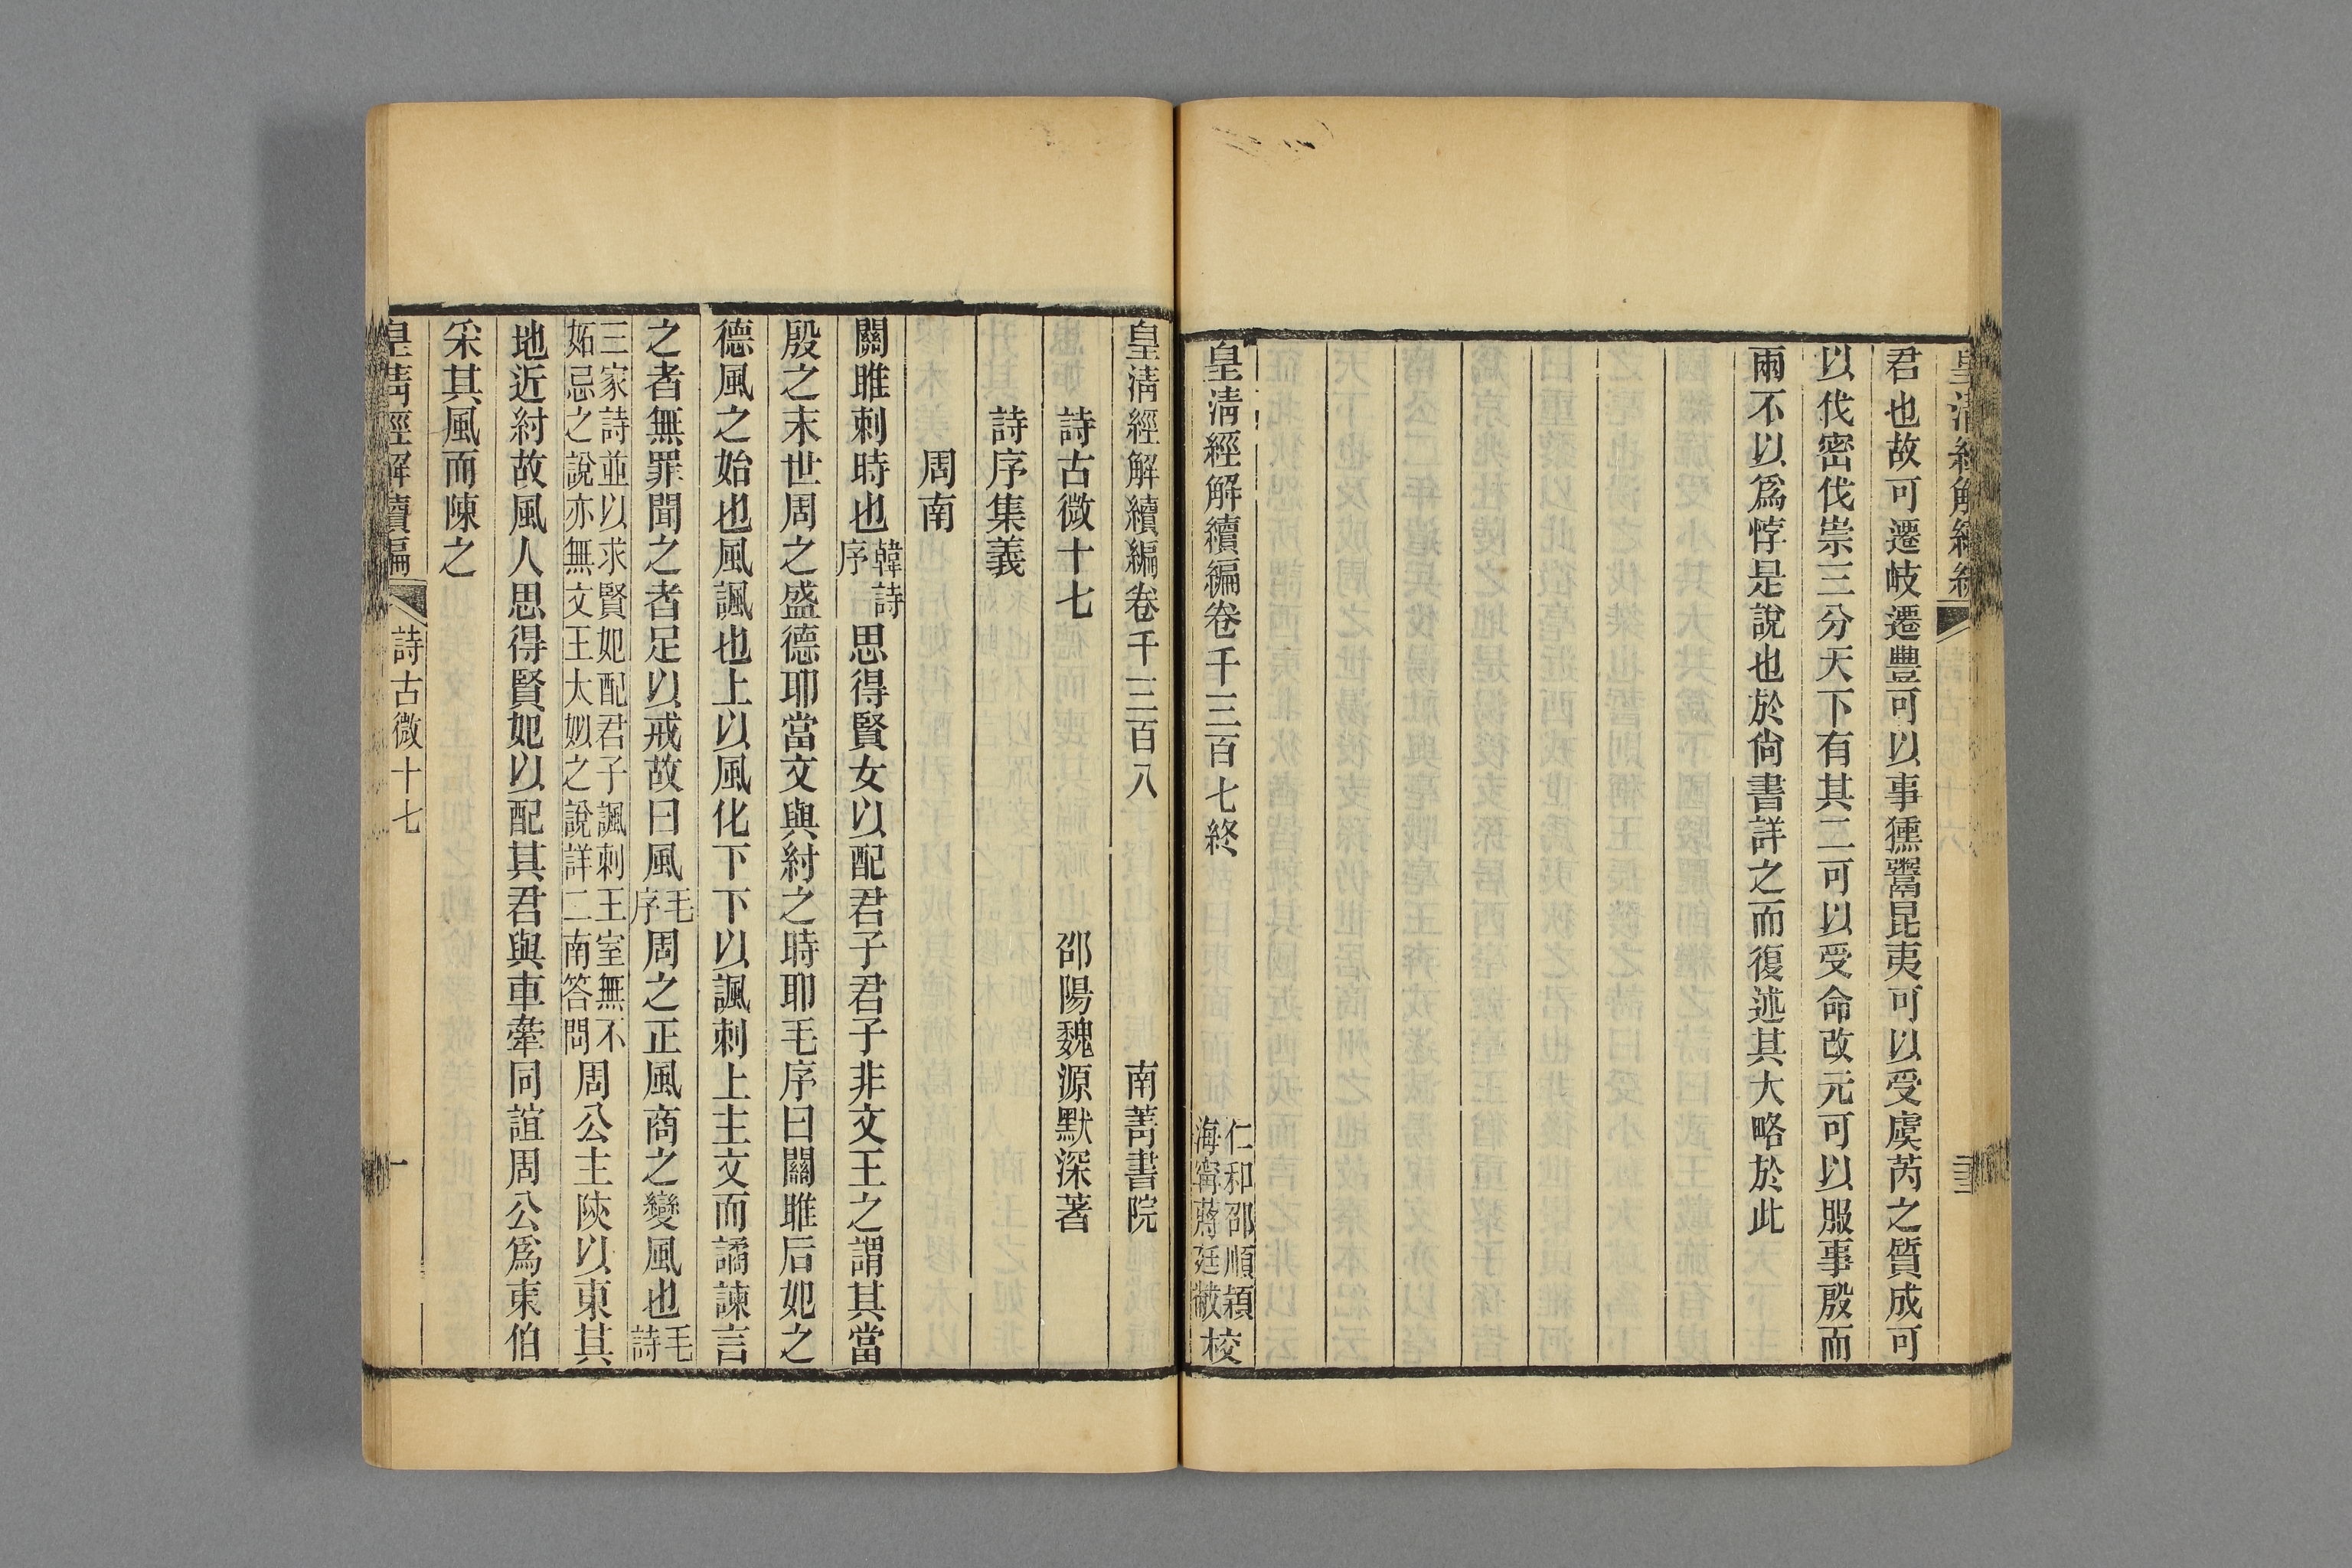 皇清經解續編
君也故可遷岐遷豐可以事獯鬻昆夷可以受虞芮之質成可
以伐密伐崇三分天下有其二可以受命改元可以服事殷而
兩不以爲悖是說也於尙書詳之而復述其大略於此
皇清經解續編卷千三百七終
仁和邵順穎
海寧蔣廷黻
校
皇清經解續編卷千三百八
南菁書院
詩古微十七
邵陽魏源默深著
詩序集義
周南
關雎刺時也韓詩序思得賢女以配君子君子非文王之謂其當
殷之末世周之盛德耶當文與紂之時耶毛序曰關雎后妃之
德風之始也風諷也上以風化下下以諷刺上主文而譎諫言
之者無罪聞之者足以戒故曰風毛序周之正風商之變風也毛詩
三家詩並以求賢妃配君子諷刺王室無不
妬忌之說亦無文王太姒之說詳二南答問
周公主陜以東其
地近紂故風人思得賢妃以配其君與車舝同誼周公爲東伯
采其風而陳之
皇清經解續編
詩古微十七
一